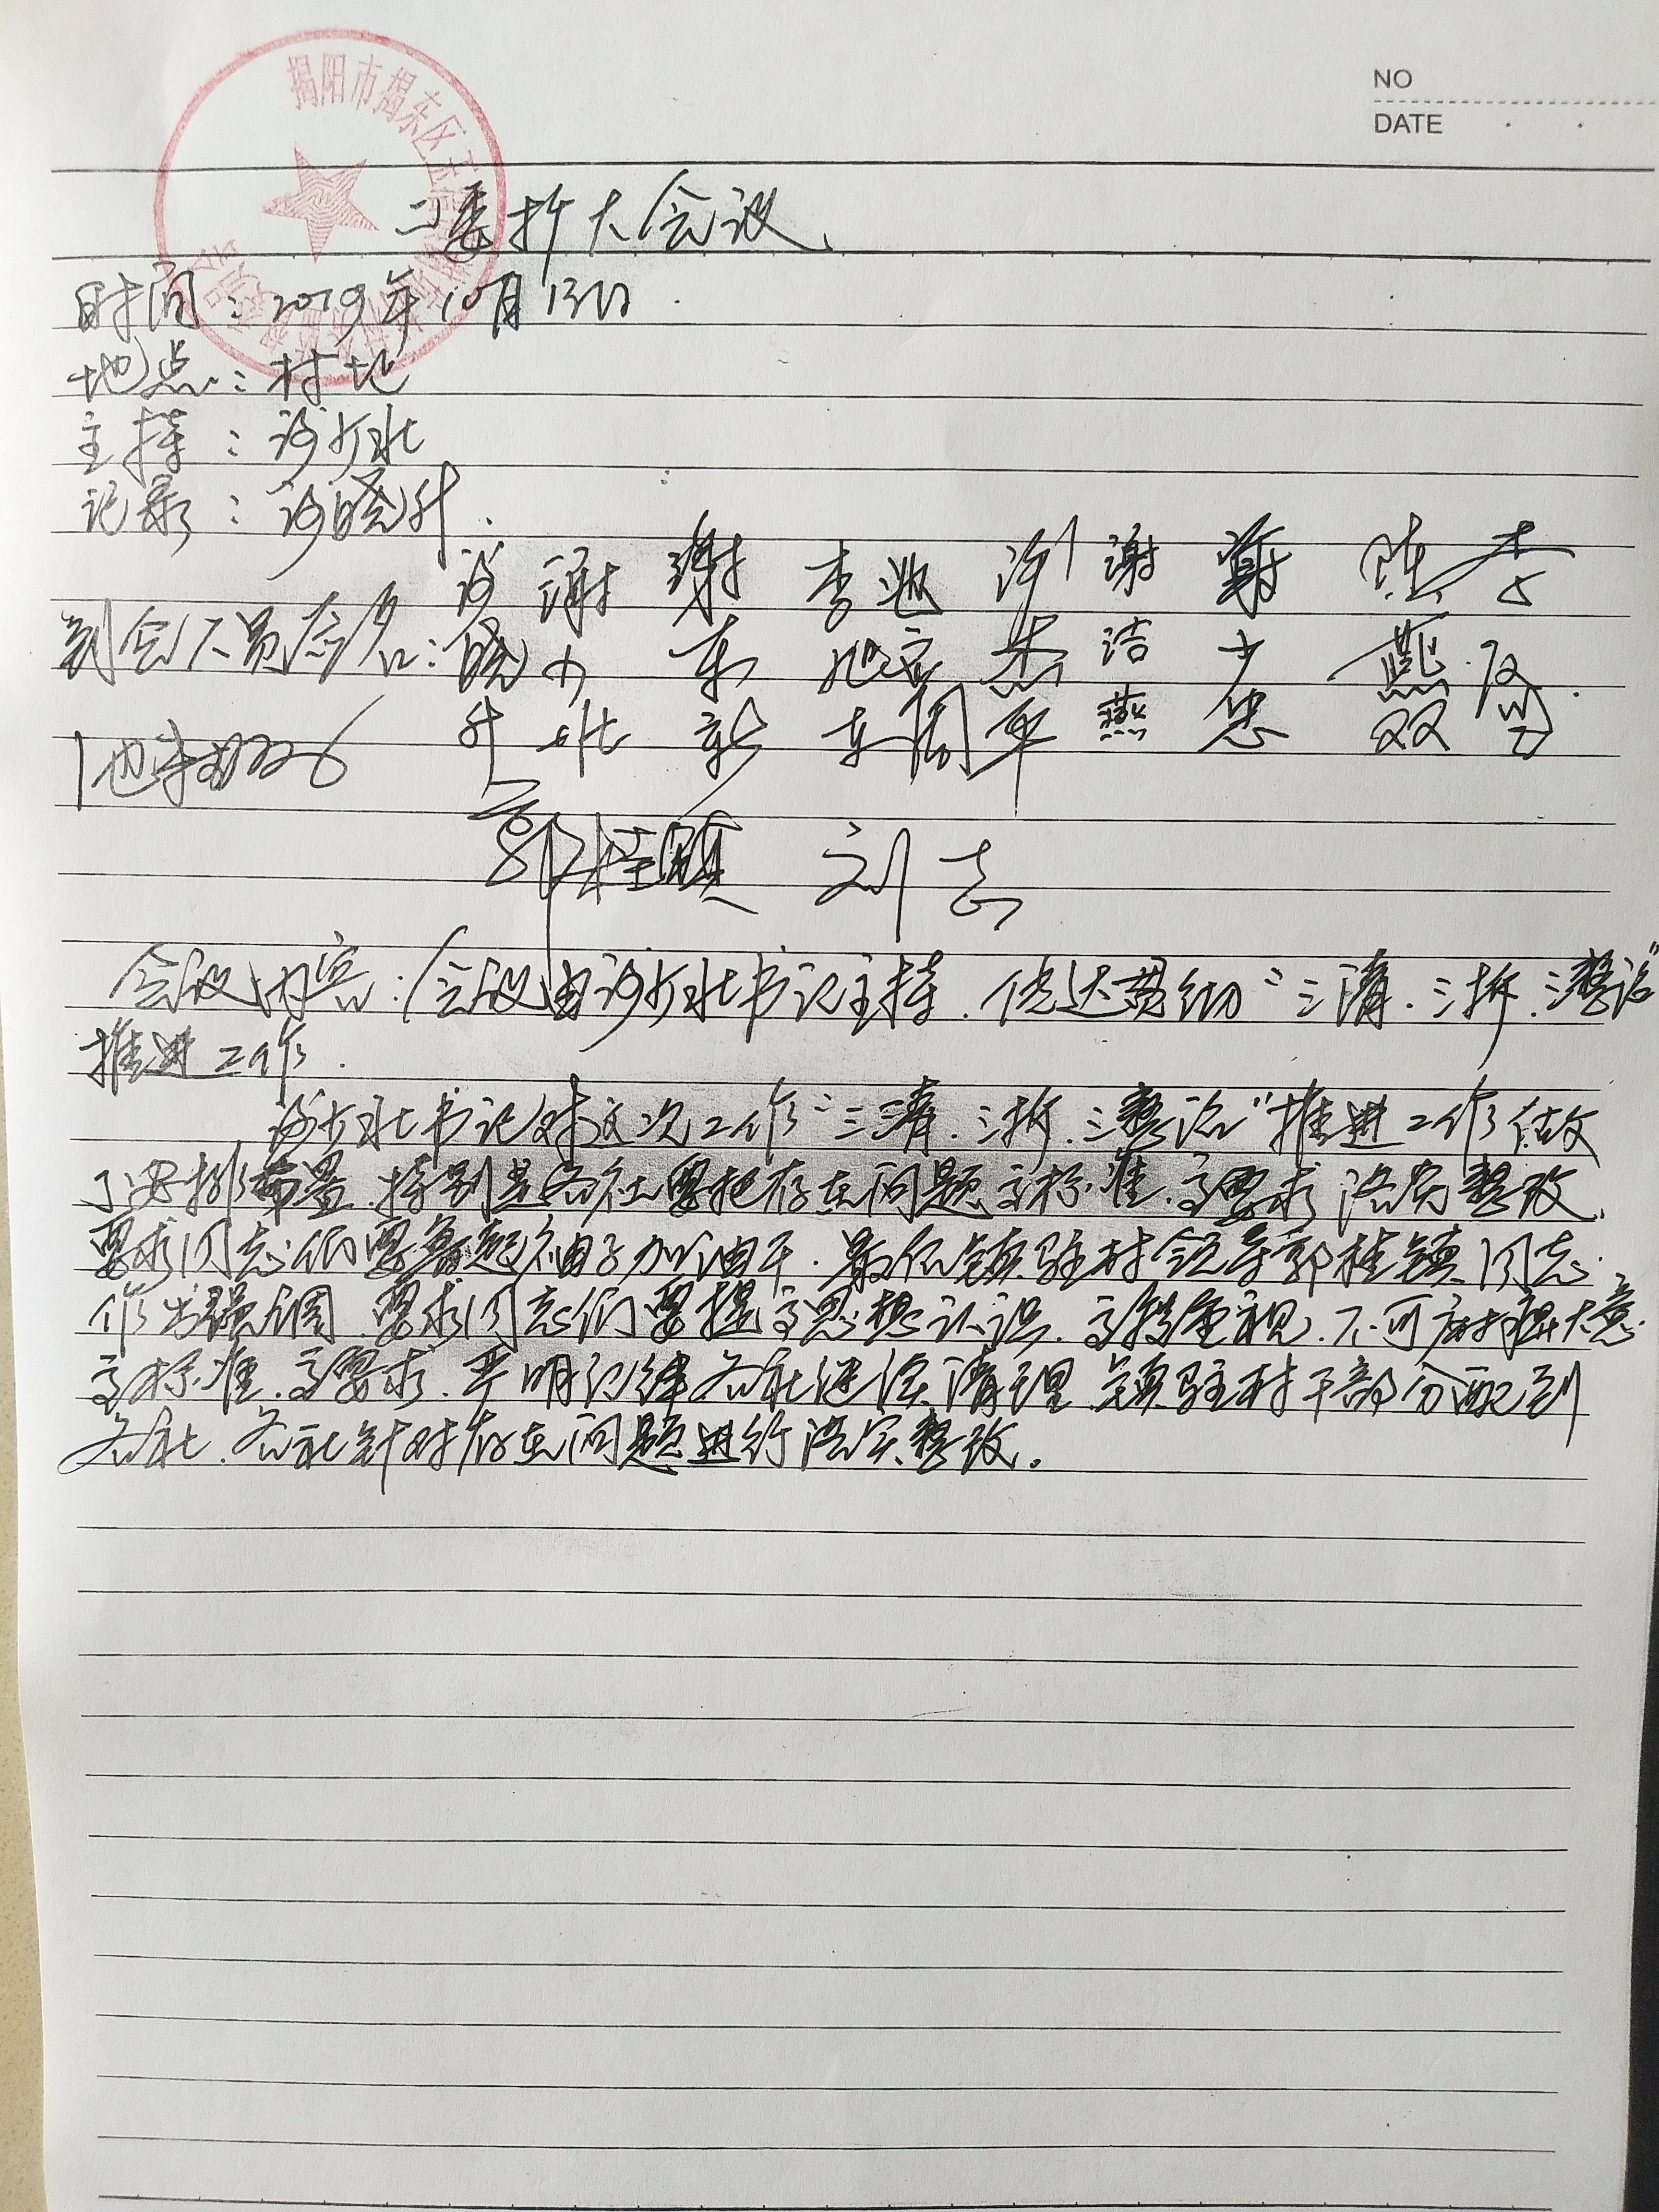 NO
DATE
揭阳市揭东区玉
二委扩大会议
时间：2019年10月13日.
地点：村址
主持：谢少水
记录：谢晓升.
到会人员签名：
谢晓升 谢少水 谢东彭 李旭东 许杰平 谢洁燕 谢少忠 陈燕双
郭桂镇 刘志
会议内容：(会议由谢少水书记主持. 传达贯彻“三清.三拆.三整治”
推进工作.
谢少水书记对这次工作“三清.三拆.三整治”推进工作做
了安排布置.特别是各社要把存在问题高标准.高要求落实整改.
要求同志们要卷起袖子加油干.最后镇驻村领导郭桂镇同志
作出强调 要求同志们要提高思想认识.高度重视.不可麻痹大意.
高标准.高要求.严明纪律各社继续清理 镇驻村干部分配到
各社.各社针对存在问题进行落实整改.